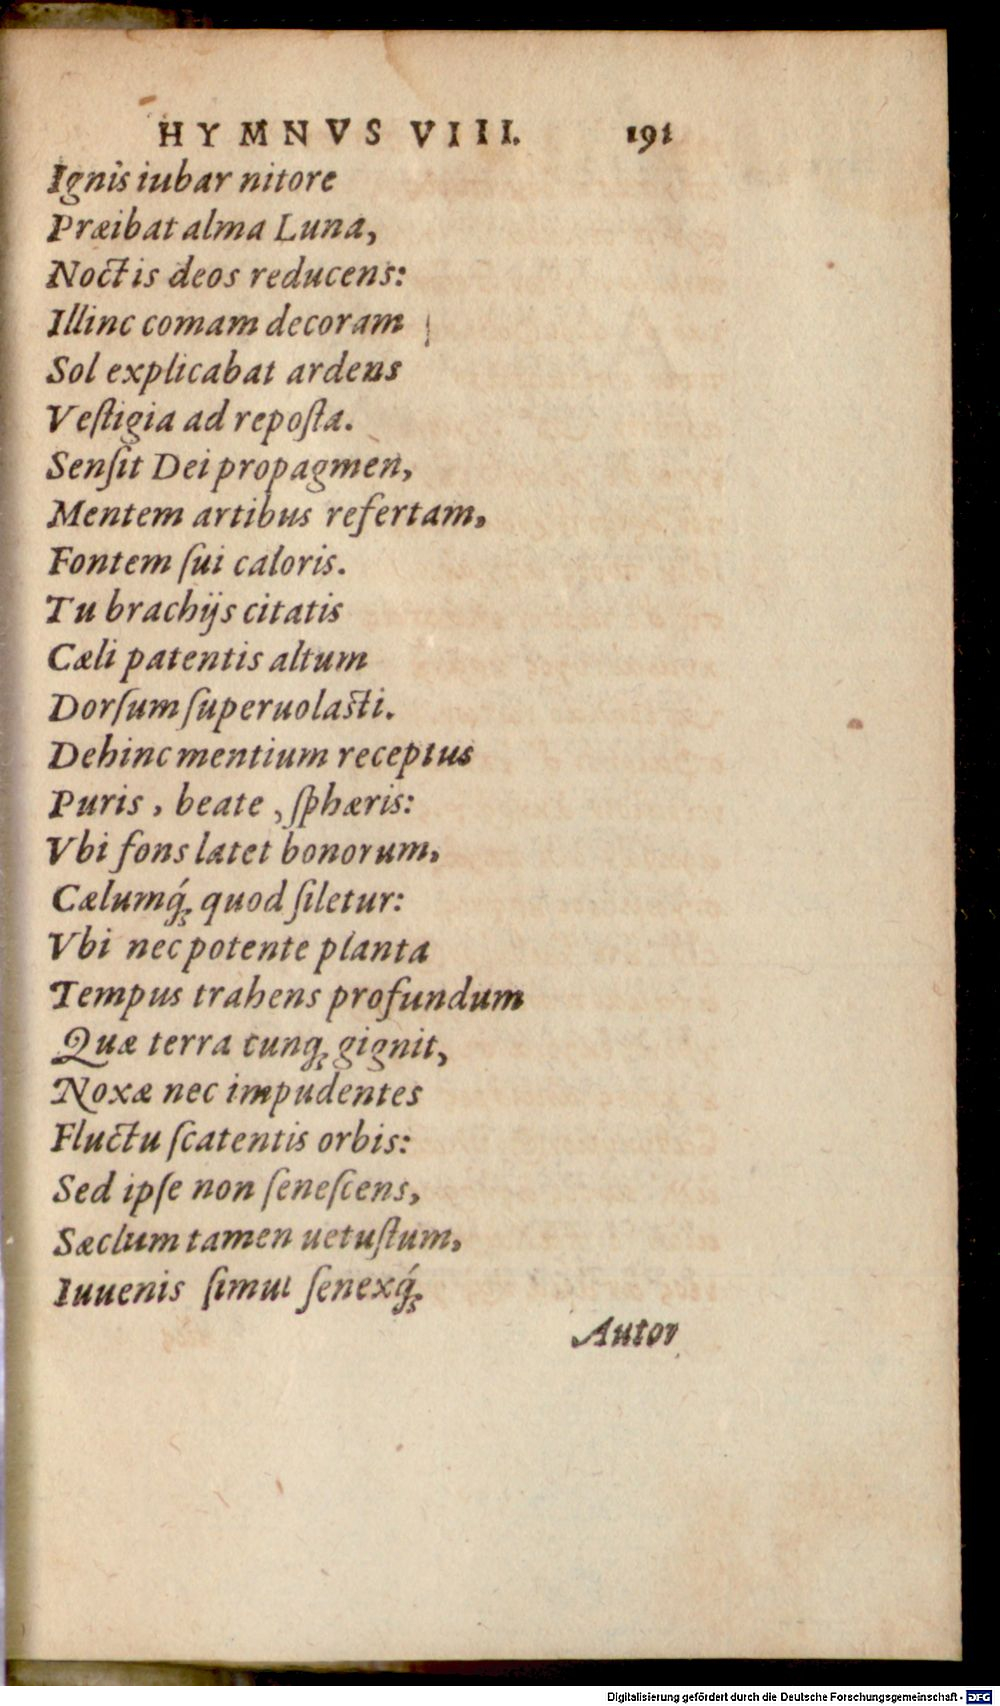 HYMNVS VIII. 191
Ignis iubar nitore
Præibat alma Luna,
Noctis deos reducens:
Illinc comam decoram
Sol explicabat ardens
Veſtigia ad repoſta.
Senſit Dei propagmen,
Mentem artibus refertam,
Fontem ſui caloris.
Tu brachijs citatis
Cæli patentis altum
Dorſum ſuperuolasti.
Dehinc mentium receptus
Puris, beate, ſphæris:
Vbi fons latet bonorum,
Cælumq́ꝫ quod ſiletur:
Vbi nec potente planta
Tempus trahens profundum
Quæ terra cunqꝫ gignit,
Noxæ nec impudentes
Fluctu ſcatentis orbis:
Sed ipſe non ſeneſcens,
Sæclum tamen uetuſtum,
Iuuenis ſimul ſenexq́ꝫ
Autor
Digitalisierung gefördert durch die Deutsche Forschungsgemeinschaft - DFG